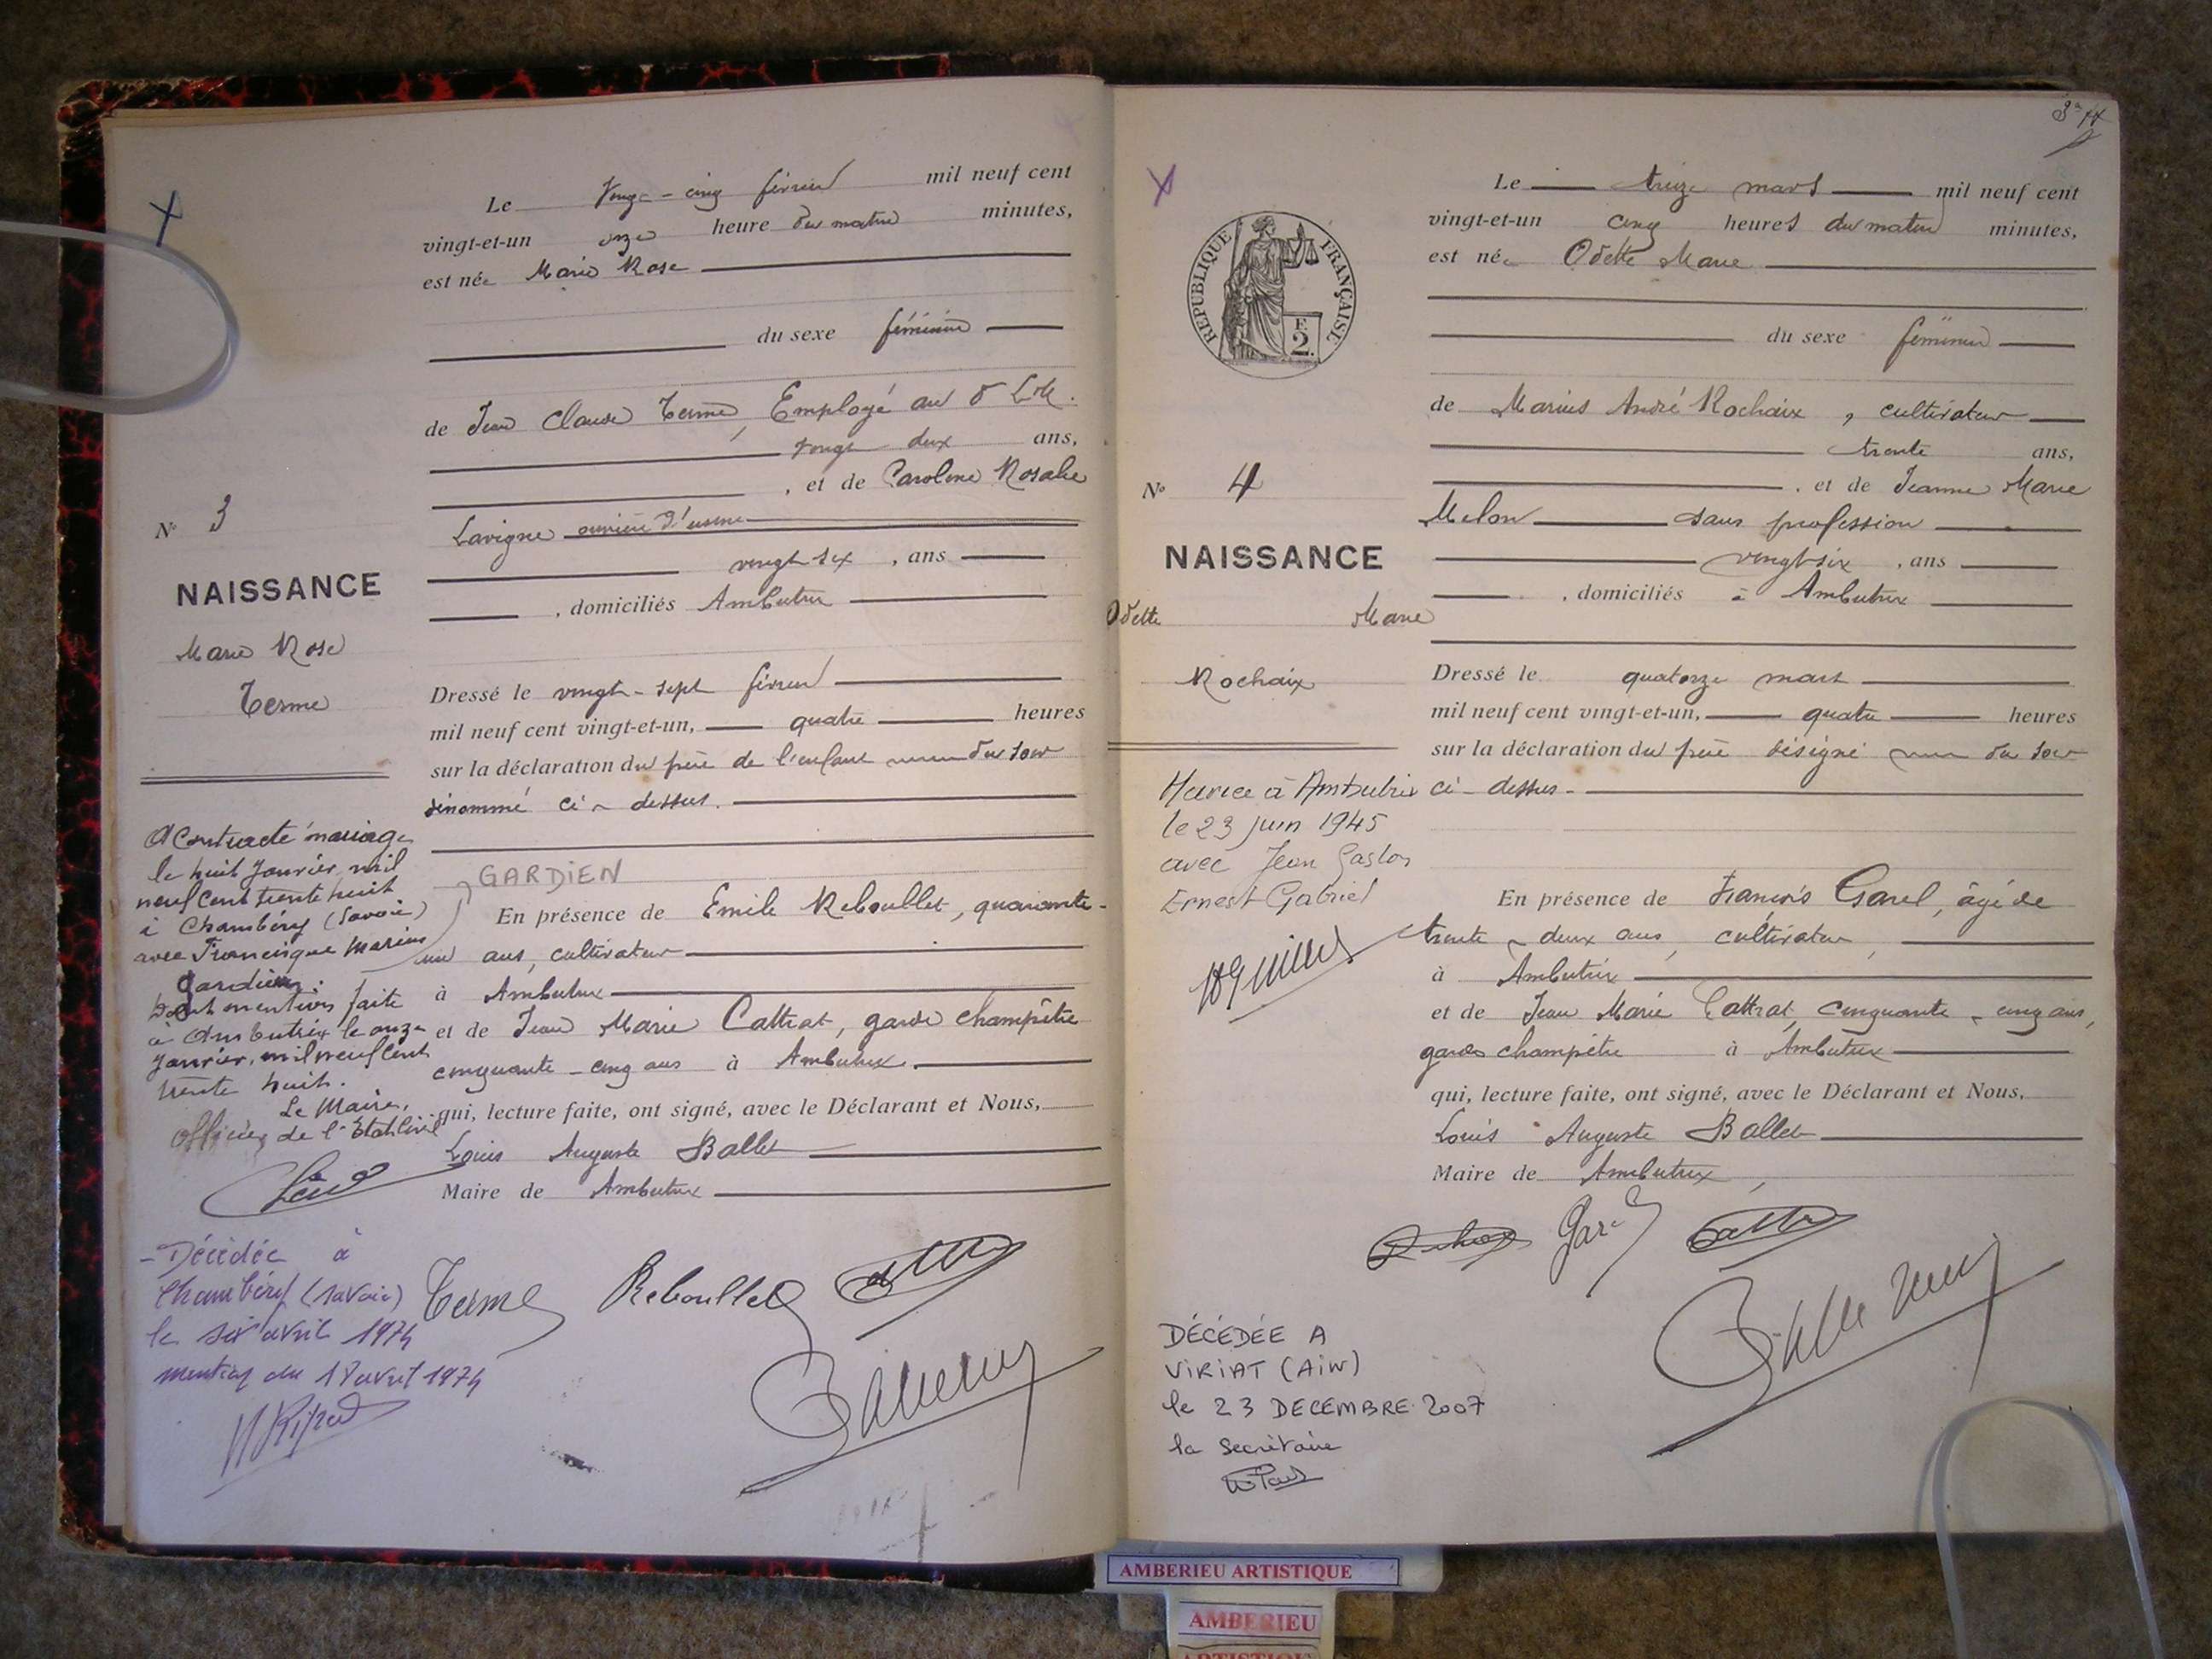 Le vingt-cinq février mil neuf cent
vingt-et-un onze heure du matin minutes,
est née Marie Rose
du sexe féminin
de Jean Claude Terme, Employé au
vingt deux ans,
, et de Caroline Rosalie
Lavigne ouvrière d'usine
vingt six , ans
, domiciliés Ambutrix
N° 3
NAISSANCE
Marie Rose
Terme
Dressé le vingt-sept février
mil neuf cent vingt-et-un, quatre heures
sur la déclaration du père de l'enfant du soir
dénommé ci-dessus.
A contracté mariage
le huit Janvier mil
neuf cent trente huit
à Chambéry (Savoie)
avec Francisque Marius
Gardien.
Dont mention faite
à Ambutrix le onze
Janvier, mil neuf cent
trente huit.
Le Maire,
Officier de l'Etat Civil
GARDIEN
En présence de Emile Reboullet, quarante-
un ans, cultivateur
à Ambutrix
et de Jean Marie Cattrat, garde champêtre
cinquante-cinq ans à Ambutrix
qui, lecture faite, ont signé, avec le Déclarant et Nous,
Louis Auguste Ballet
Maire de Ambutrix
- Décédée à
Chambéry (Savoie)
le six avril 1974
mention du 18 avril 1974
Terme Reboullet
Le treize mars mil neuf cent
vingt-et-un cinq heures du matin minutes,
est née Odette Marie
REPUBLIQUE FRANÇAISE
F.
2.
du sexe féminin
de Marius André Rochaix, cultivateur
trente ans,
, et de Jeanne Marie
Melon sans profession
vingt-six , ans
, domiciliés à Ambutrix
N° 4
NAISSANCE
Odette Marie
Rochaix
Dressé le quatorze mars
mil neuf cent vingt-et-un, quatre heures
sur la déclaration du père désigné du soir
ci-dessus-
Mariée à Ambutrix
le 23 juin 1945
avec Jean Gaston
Ernest Gabriel
En présence de François Garel, âgé de
trente-deux ans, cultivateur,
à Ambutrix
et de Jean Marie Cattrat, cinquante-cinq ans,
garde champêtre à Ambutrix
qui, lecture faite, ont signé, avec le Déclarant et Nous,
Louis Auguste Ballet
Maire de Ambutrix,
DÉCÉDÉE A
VIRIAT (AIN)
le 23 DECEMBRE 2007
la Secrétaire
AMBERIEU ARTISTIQUE
AMBERIEU
ARTISTIQUE